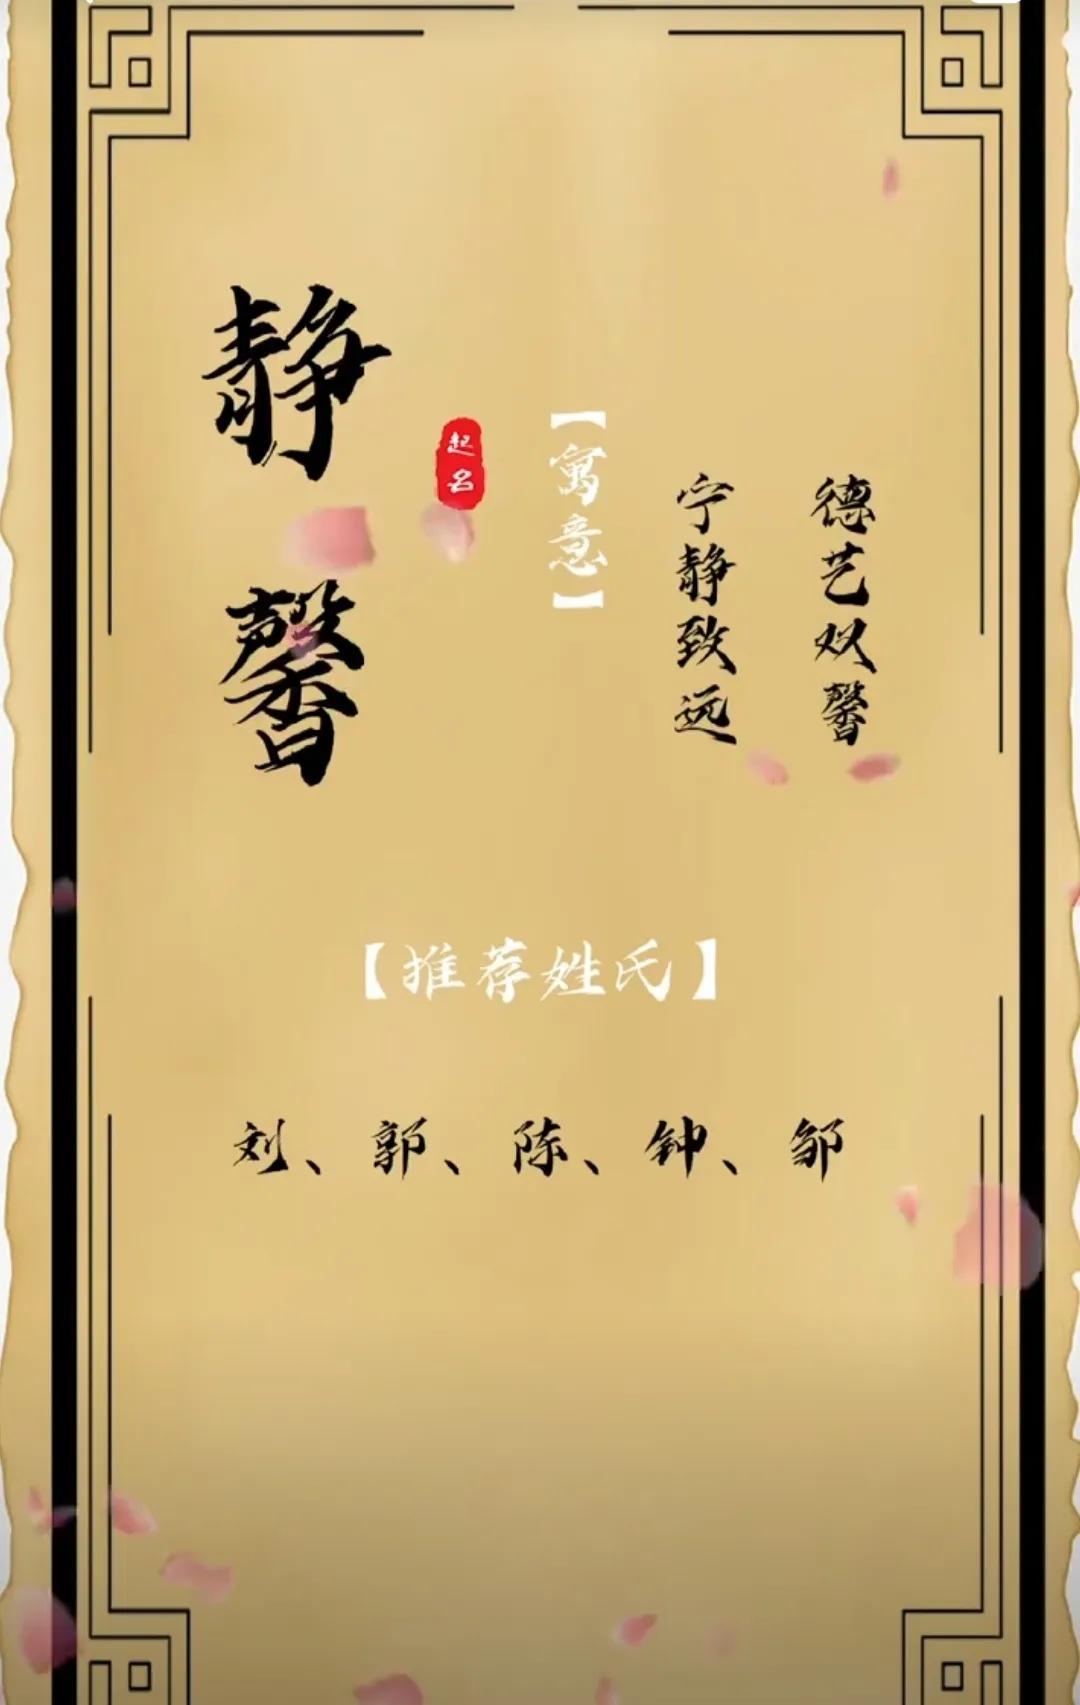 静馨
起名
【寓意】
宁静致远
德艺双馨
【推荐姓氏】
刘、郭、陈、钟、邹